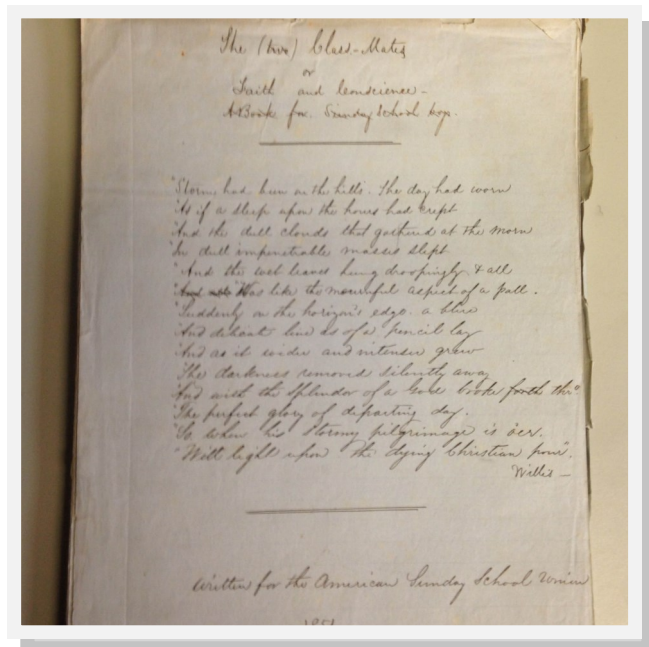 The (two) Class-Mates
or
Faith and Conscience -
A Book for Sunday School boys.
"Storm had been on the hills. The day had worn
"As if a sleep upon the hours had crept
"And the dull clouds that gathered at the morn
"In dull impenetrable masses slept
"And the wet leaves hung droopingly & all
"Was like the mournful aspect of a pall.
"Suddenly on the horizon's edge. a blue
"And delicate line as of a pencil lay
"And as it wider and intenser grew
"The darkness removed silently away
"And with the splendor of a God broke forth thro'
"The perfect glory of departing day.
"So when his stormy pilgrimage is o'er.
"Will light upon the dying Christian pour".
Willis -
Written for the American Sunday School Union